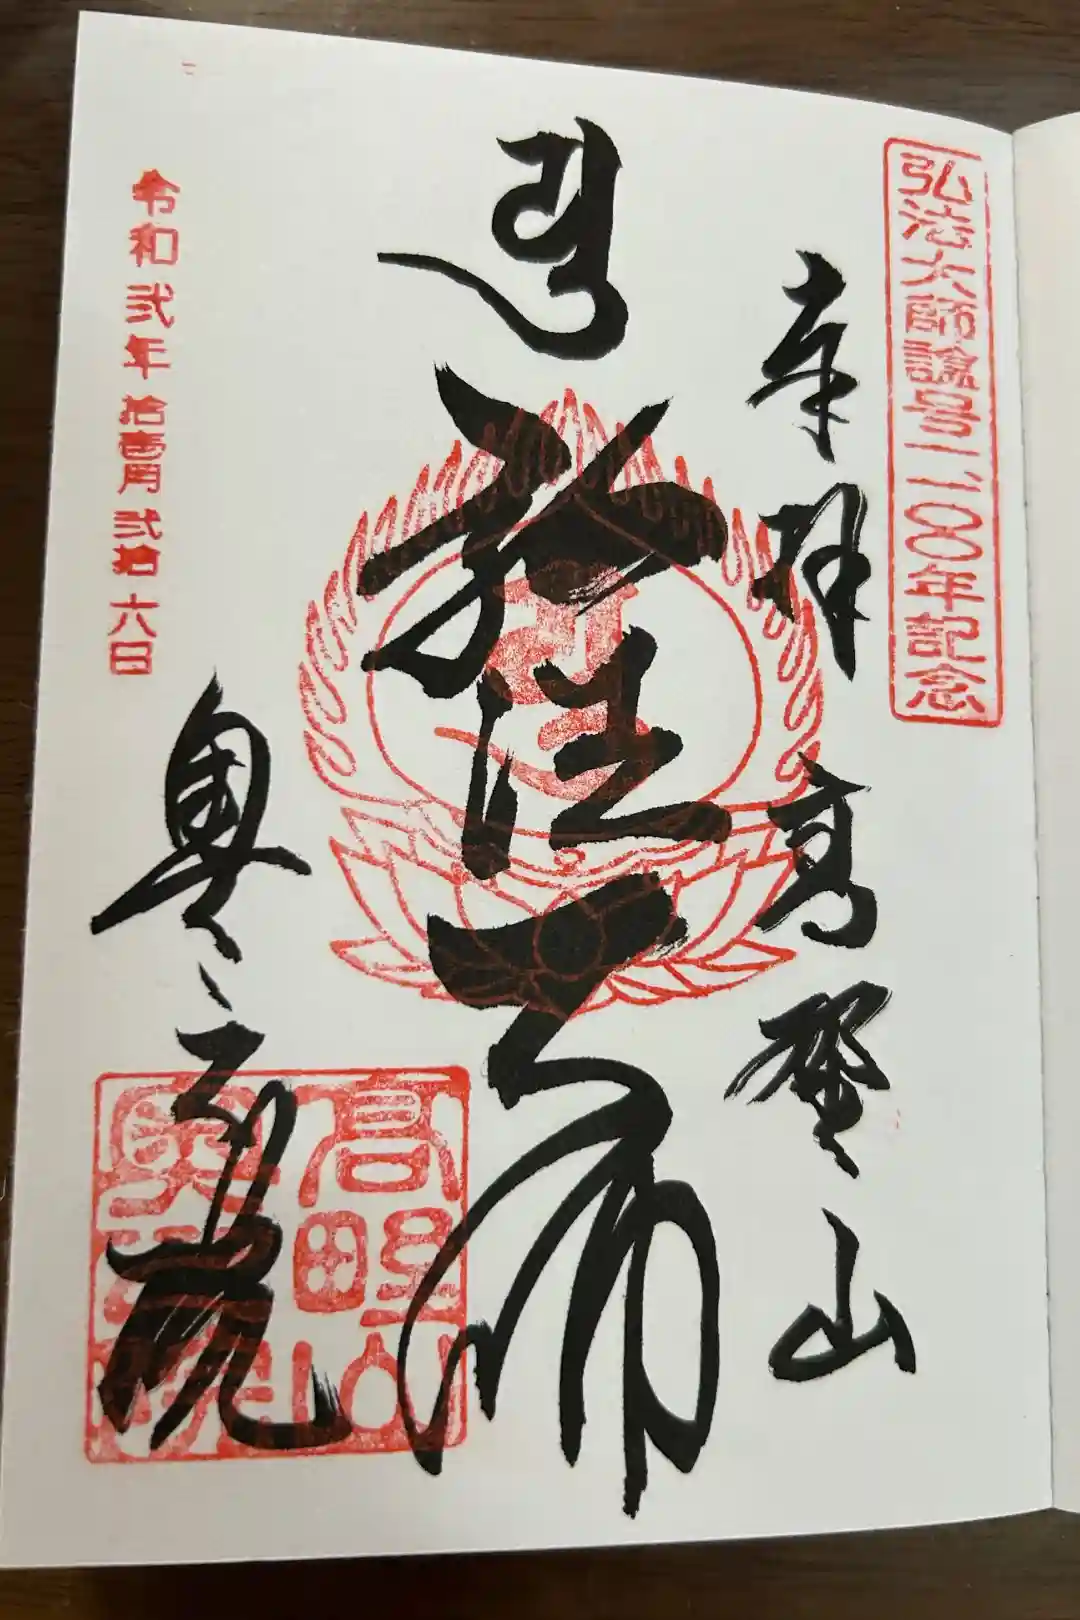 弘法大師諡号一一〇〇年記念
奉拝 高野山
弘法大師
令和弐年拾壱月弐拾六日
奥之院
高野山
奥之院